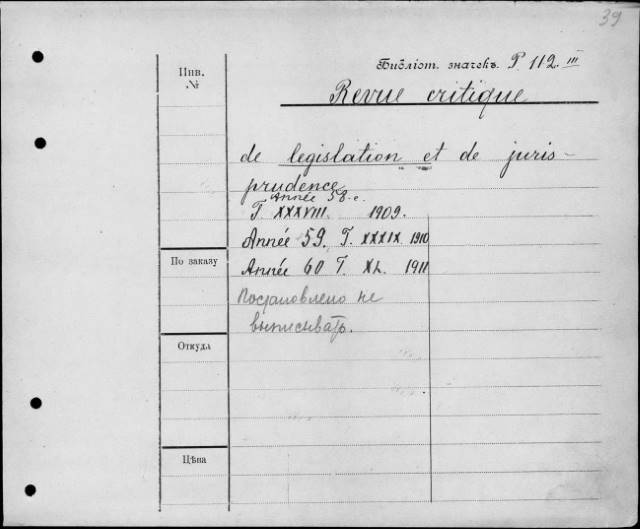 39
Библіот. значекъ P 112 III
Revue critique
de legislation et de juris-
prudence
Année 58-e.
T XXXVIII. 1909.
Année 59. T. XXXIX 1910
Année 60 T. XL. 1911
Постановлено не
выписывать.
Инв.
№
По заказу
Откуда
Цѣна